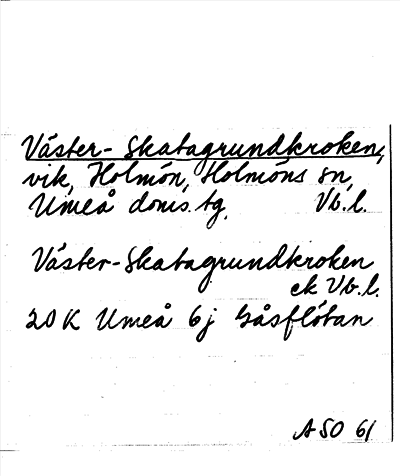 Väster-Skatagrundkroken,
vik, Holmön, Holmöns sn,
Umeå doms. tg, Vb.l.
Väster-Skatagrundkroken
ek Vb.l.
20 K Umeå 6j Gåsflötan
ASO 61